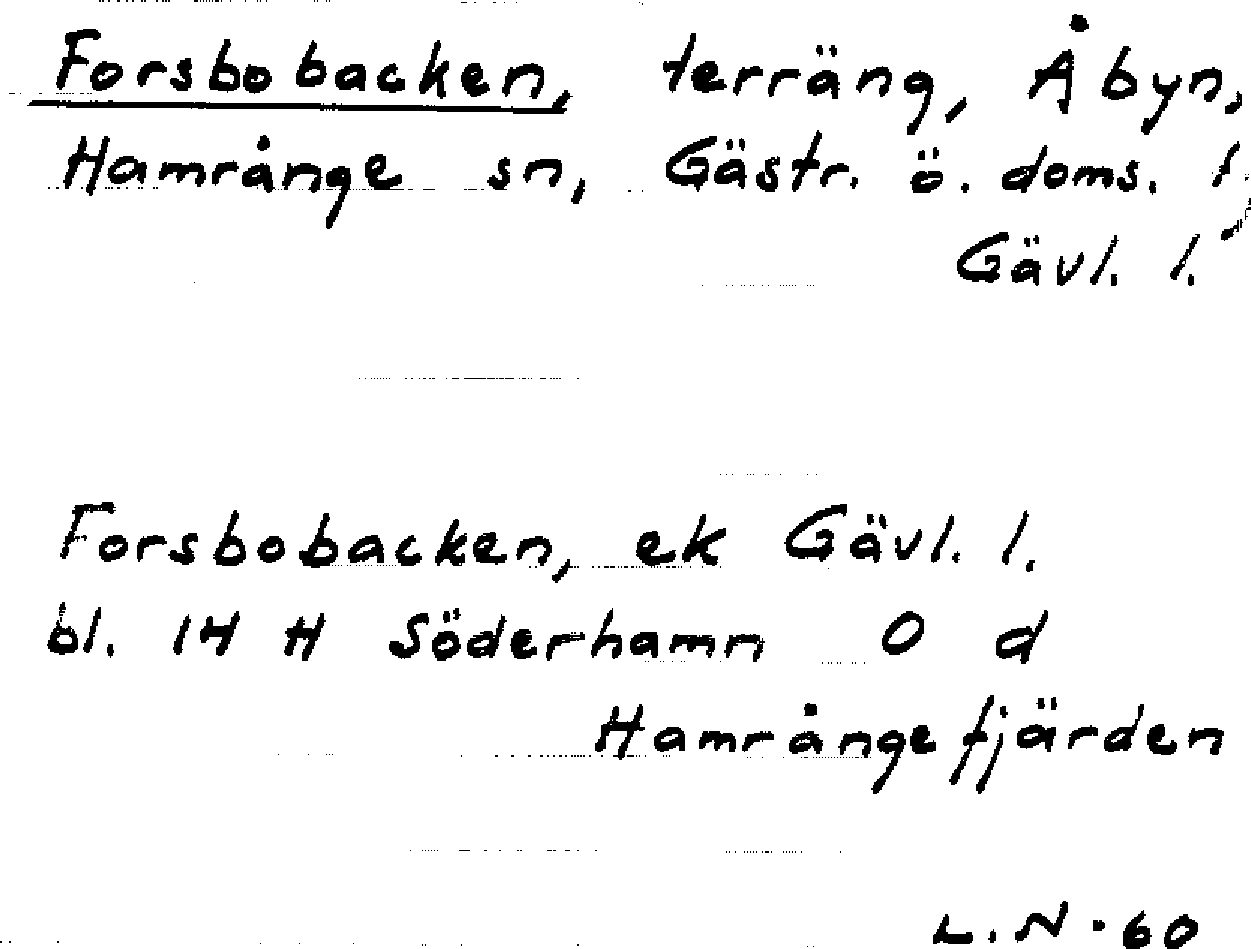 Forsbobacken, terräng, Åbyn,
Hamrånge sn, Gästr. ö. doms. l.,
Gävl. l.
Forsbobacken, ek Gävl. l.
bl. 14 H Söderhamn 0 d
Hamrångefjärden
L.N.60